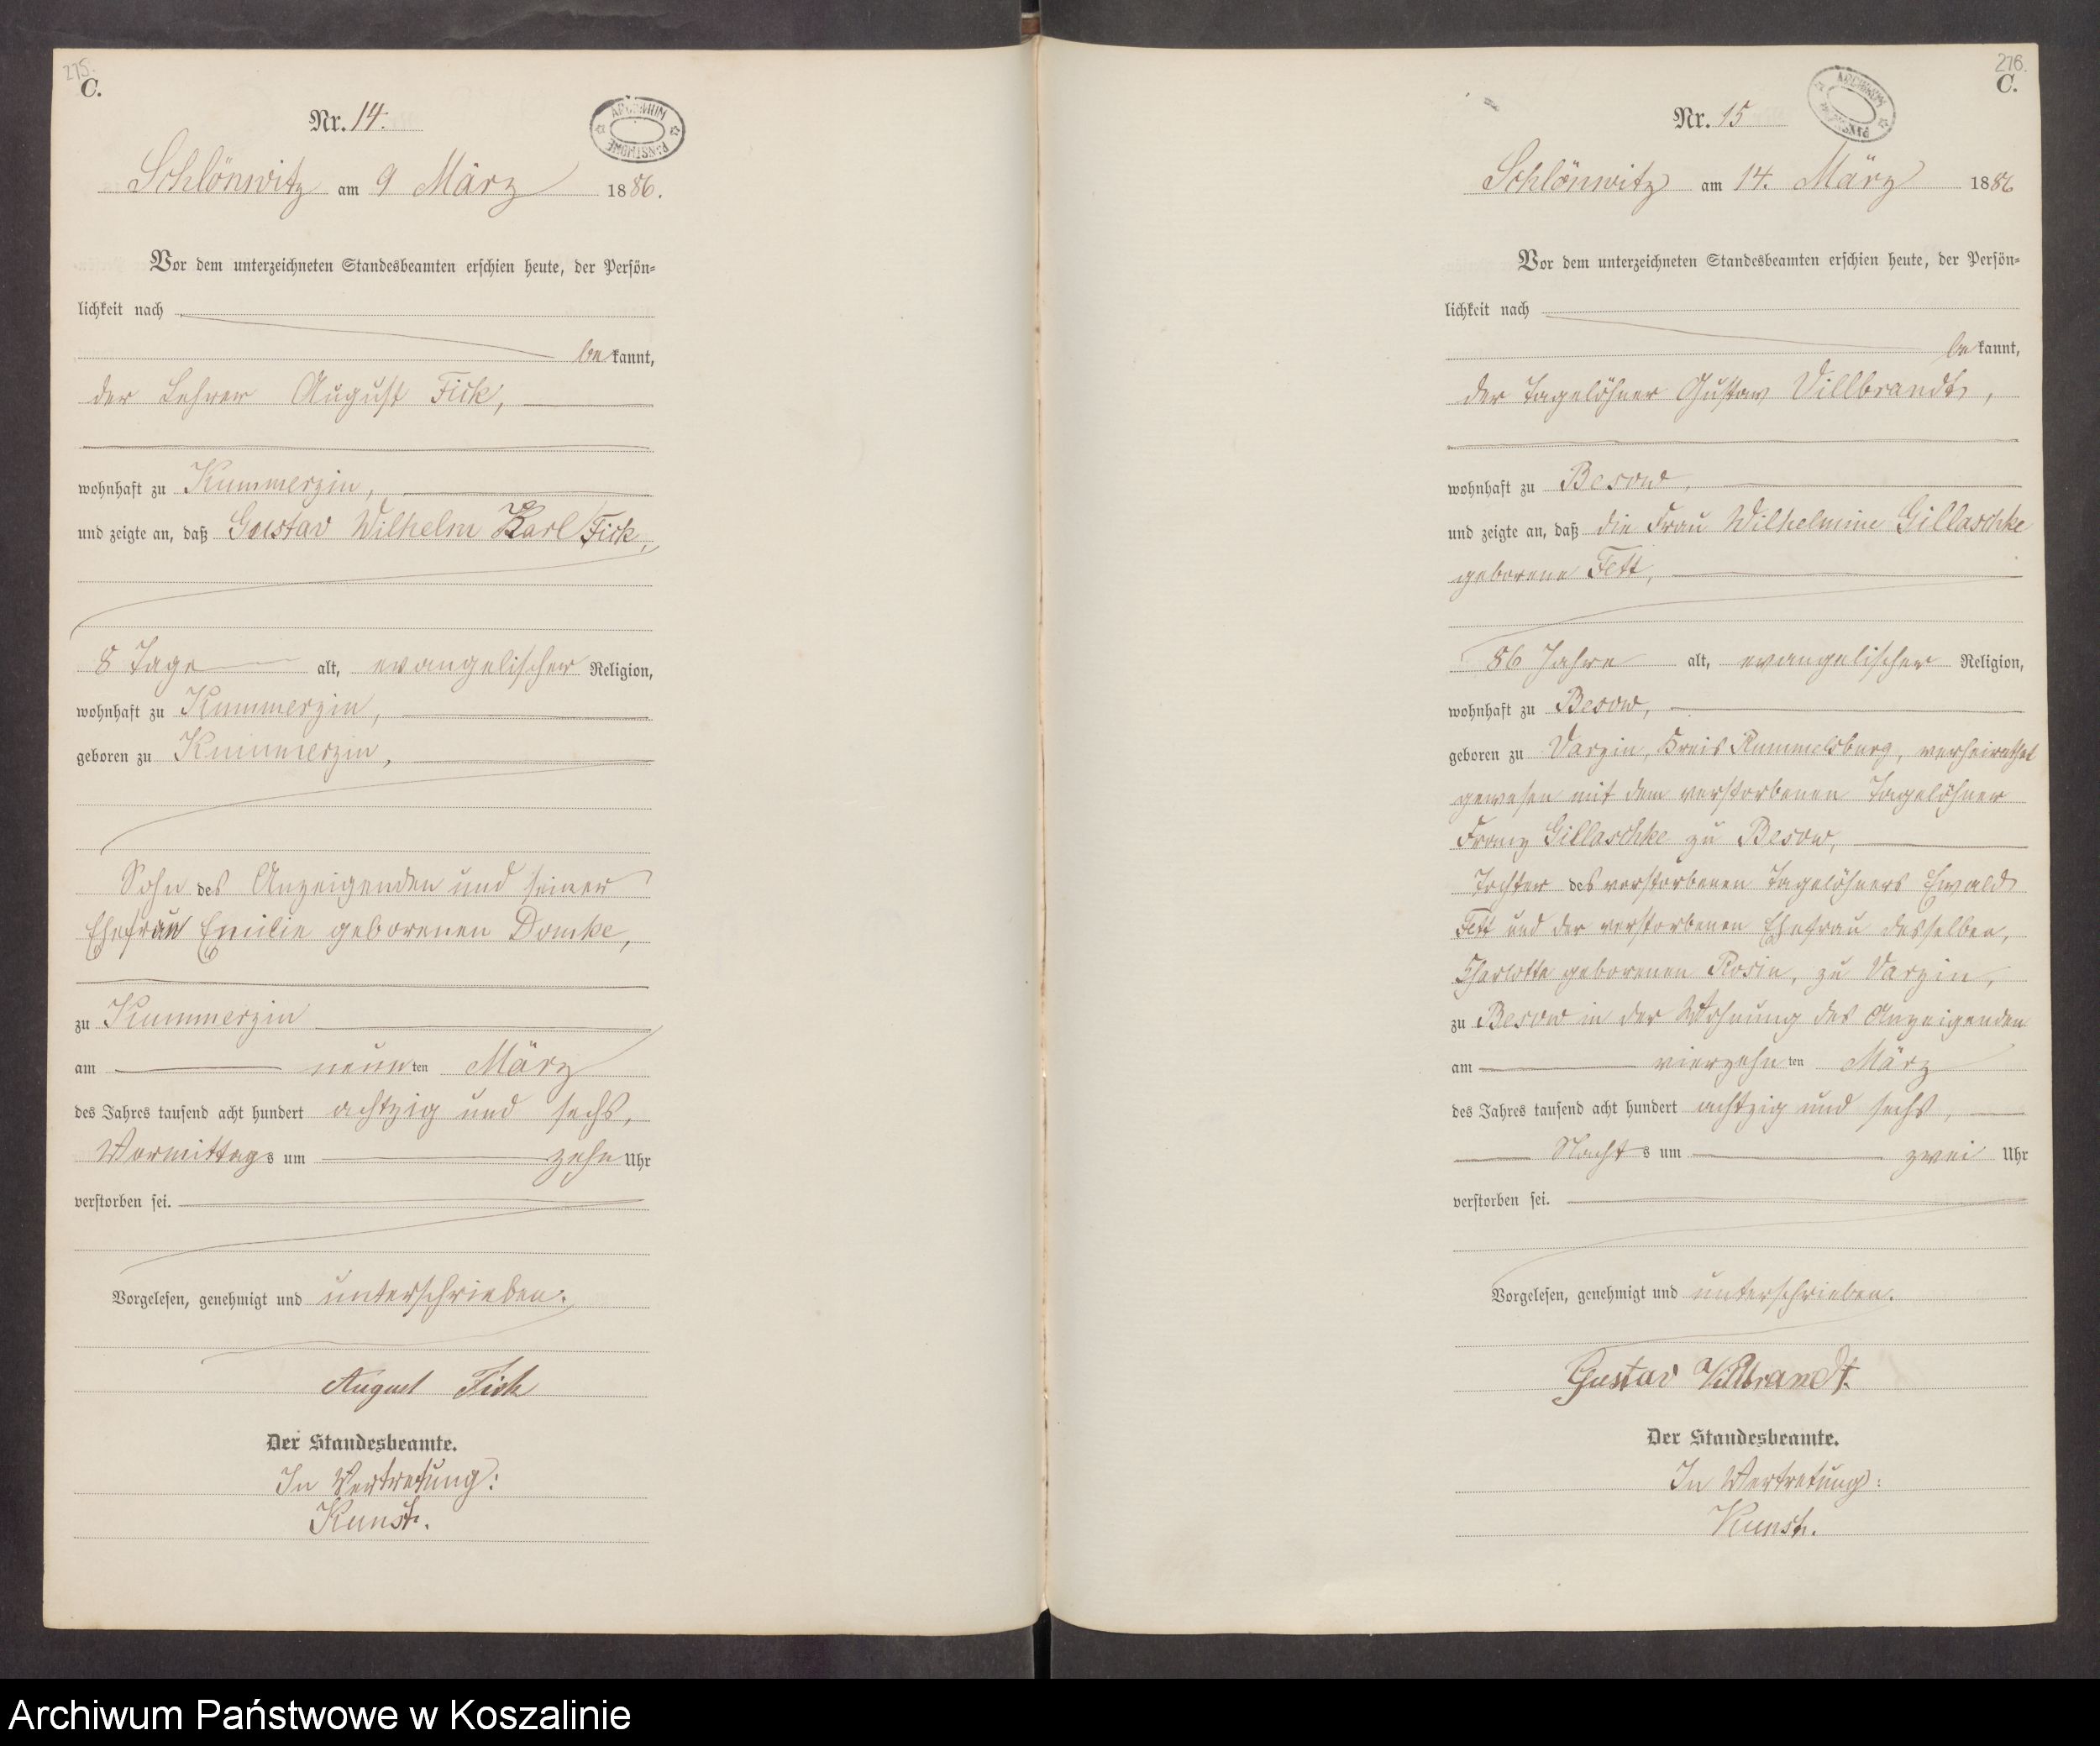 275.
C.
Nr. 14.
ARCHIWUM PAŃSTWOWE
Schlönwitz am 9 März 1886.
Vor dem unterzeichneten Standesbeamten erschien heute, der Persön-
lichkeit nach
bekannt,
der Lehrer August Fick,
wohnhaft zu Kummerzin,
und zeigte an, daß Gustav Wilhelm Karl Fick,
8 Tage alt, evangelischer Religion,
wohnhaft zu Kummerzin,
geboren zu Kummerzin,
Sohn des Anzeigenden und seiner
Ehefrau Emilie geborenen Domke,
zu Kummerzin
am neunten März
des Jahres tausend acht hundert achtzig und sechs,
Vormittags um zehn Uhr
verstorben sei.
Vorgelesen, genehmigt und unterschrieben.
August Fick
Der Standesbeamte.
In Vertretung:
Kunst.
276.
C.
Nr. 15
ARCHIWUM PAŃSTWOWE
Schlönwitz am 14. März 1886
Vor dem unterzeichneten Standesbeamten erschien heute, der Persön-
lichkeit nach
bekannt,
der Tagelöhner Gustav Villbrandt,
wohnhaft zu Besow,
und zeigte an, daß die Frau Wilhelmine Gillaschke
geborene Fett,
86 Jahre alt, evangelischer Religion,
wohnhaft zu Besow,
geboren zu Varzin, Kreis Rummelsburg, verheirathet
gewesen mit dem verstorbenen Tagelöhner
Franz Gillaschke zu Besow,
Tochter des verstorbenen Tagelöhners Ewald
Fett und der verstorbenen Ehefrau desselben,
Charlotte geborenen Rosin, zu Varzin,
zu Besow in der Wohnung des Anzeigenden
am vierzehnten März
des Jahres tausend acht hundert achtzig und sechs,
Nachts um zwei Uhr
verstorben sei.
Vorgelesen, genehmigt und unterschrieben.
Gustav Villbrandt.
Der Standesbeamte.
In Vertretung:
Kunst.
Archiwum Państwowe w Koszalinie